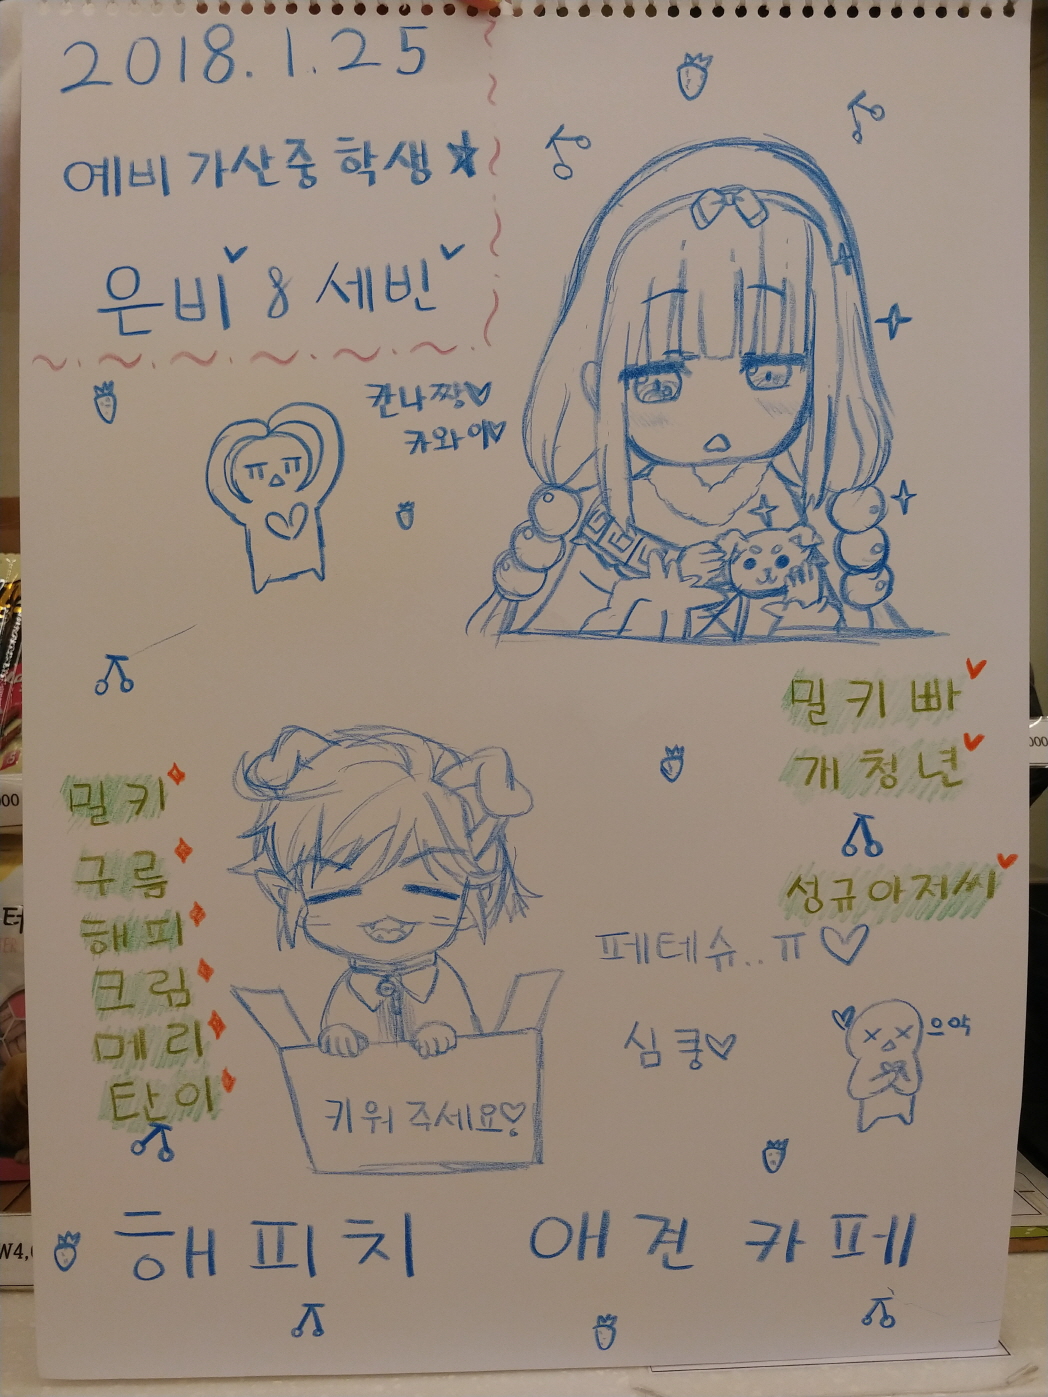 2018.1.25
예비 가산중 학생
은비 & 세빈
칸나짱
카와이
밀키빠
개청년
성규아저씨
밀키
구름
해피
크림
메리
탄이
페테슈..ㅠ
심쿵
으악
키워 주세요
해피치 애견 카페